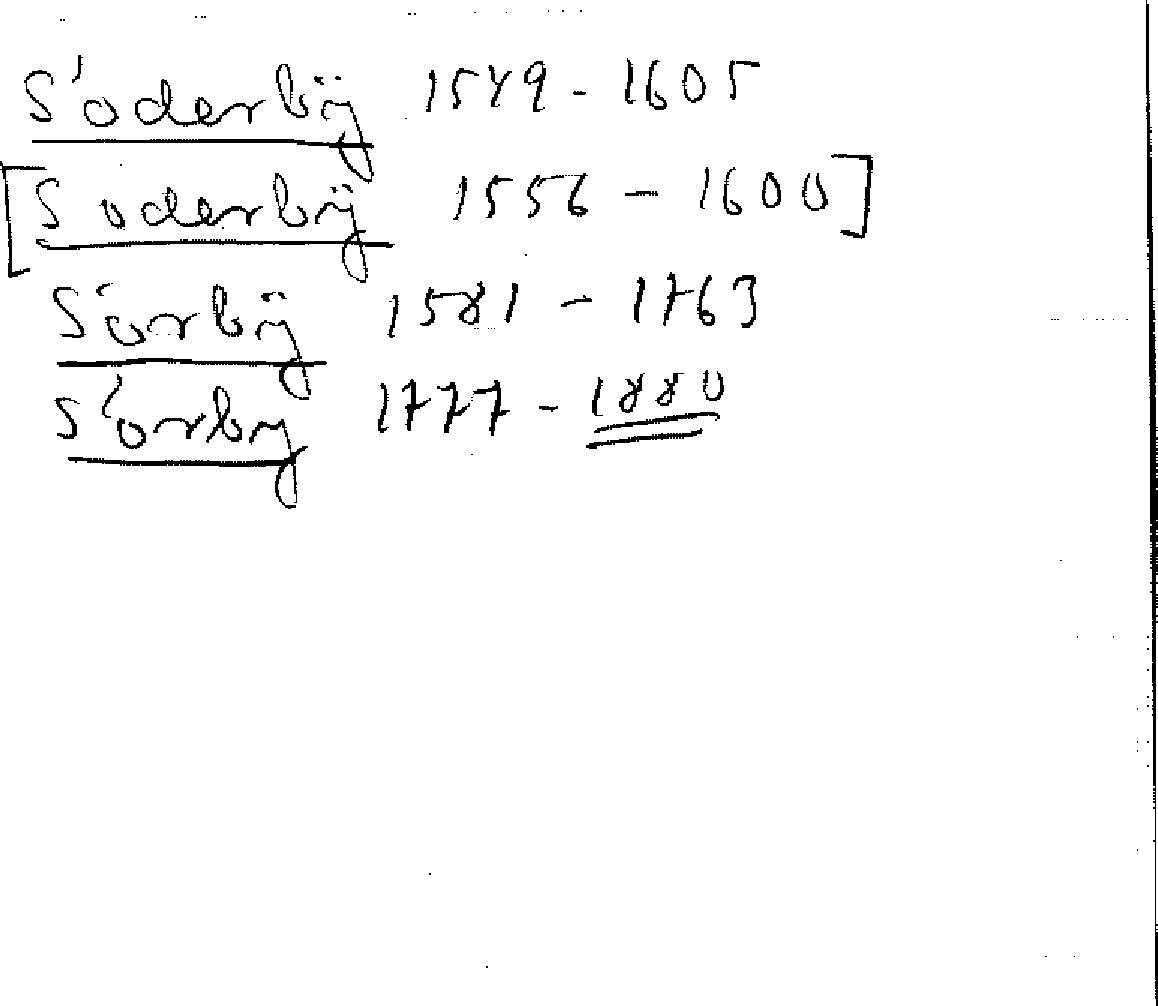 Söderbÿ 1549 - 1605
[Soderbÿ 1556 - 1600]
Sörbÿ 1581 - 1763
Sörby 1777 - 1880